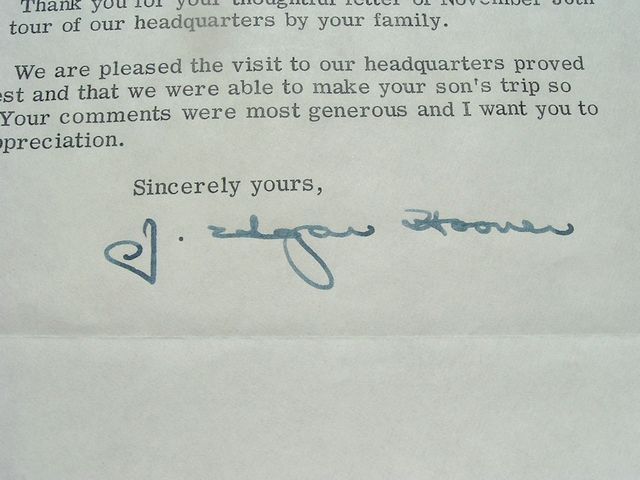 Thank you for your thoughtful letter of November 30th
tour of our headquarters by your family.
We are pleased the visit to our headquarters proved
est and that we were able to make your son's trip so
Your comments were most generous and I want you to
ppreciation.
Sincerely yours,
J. Edgar Hoover